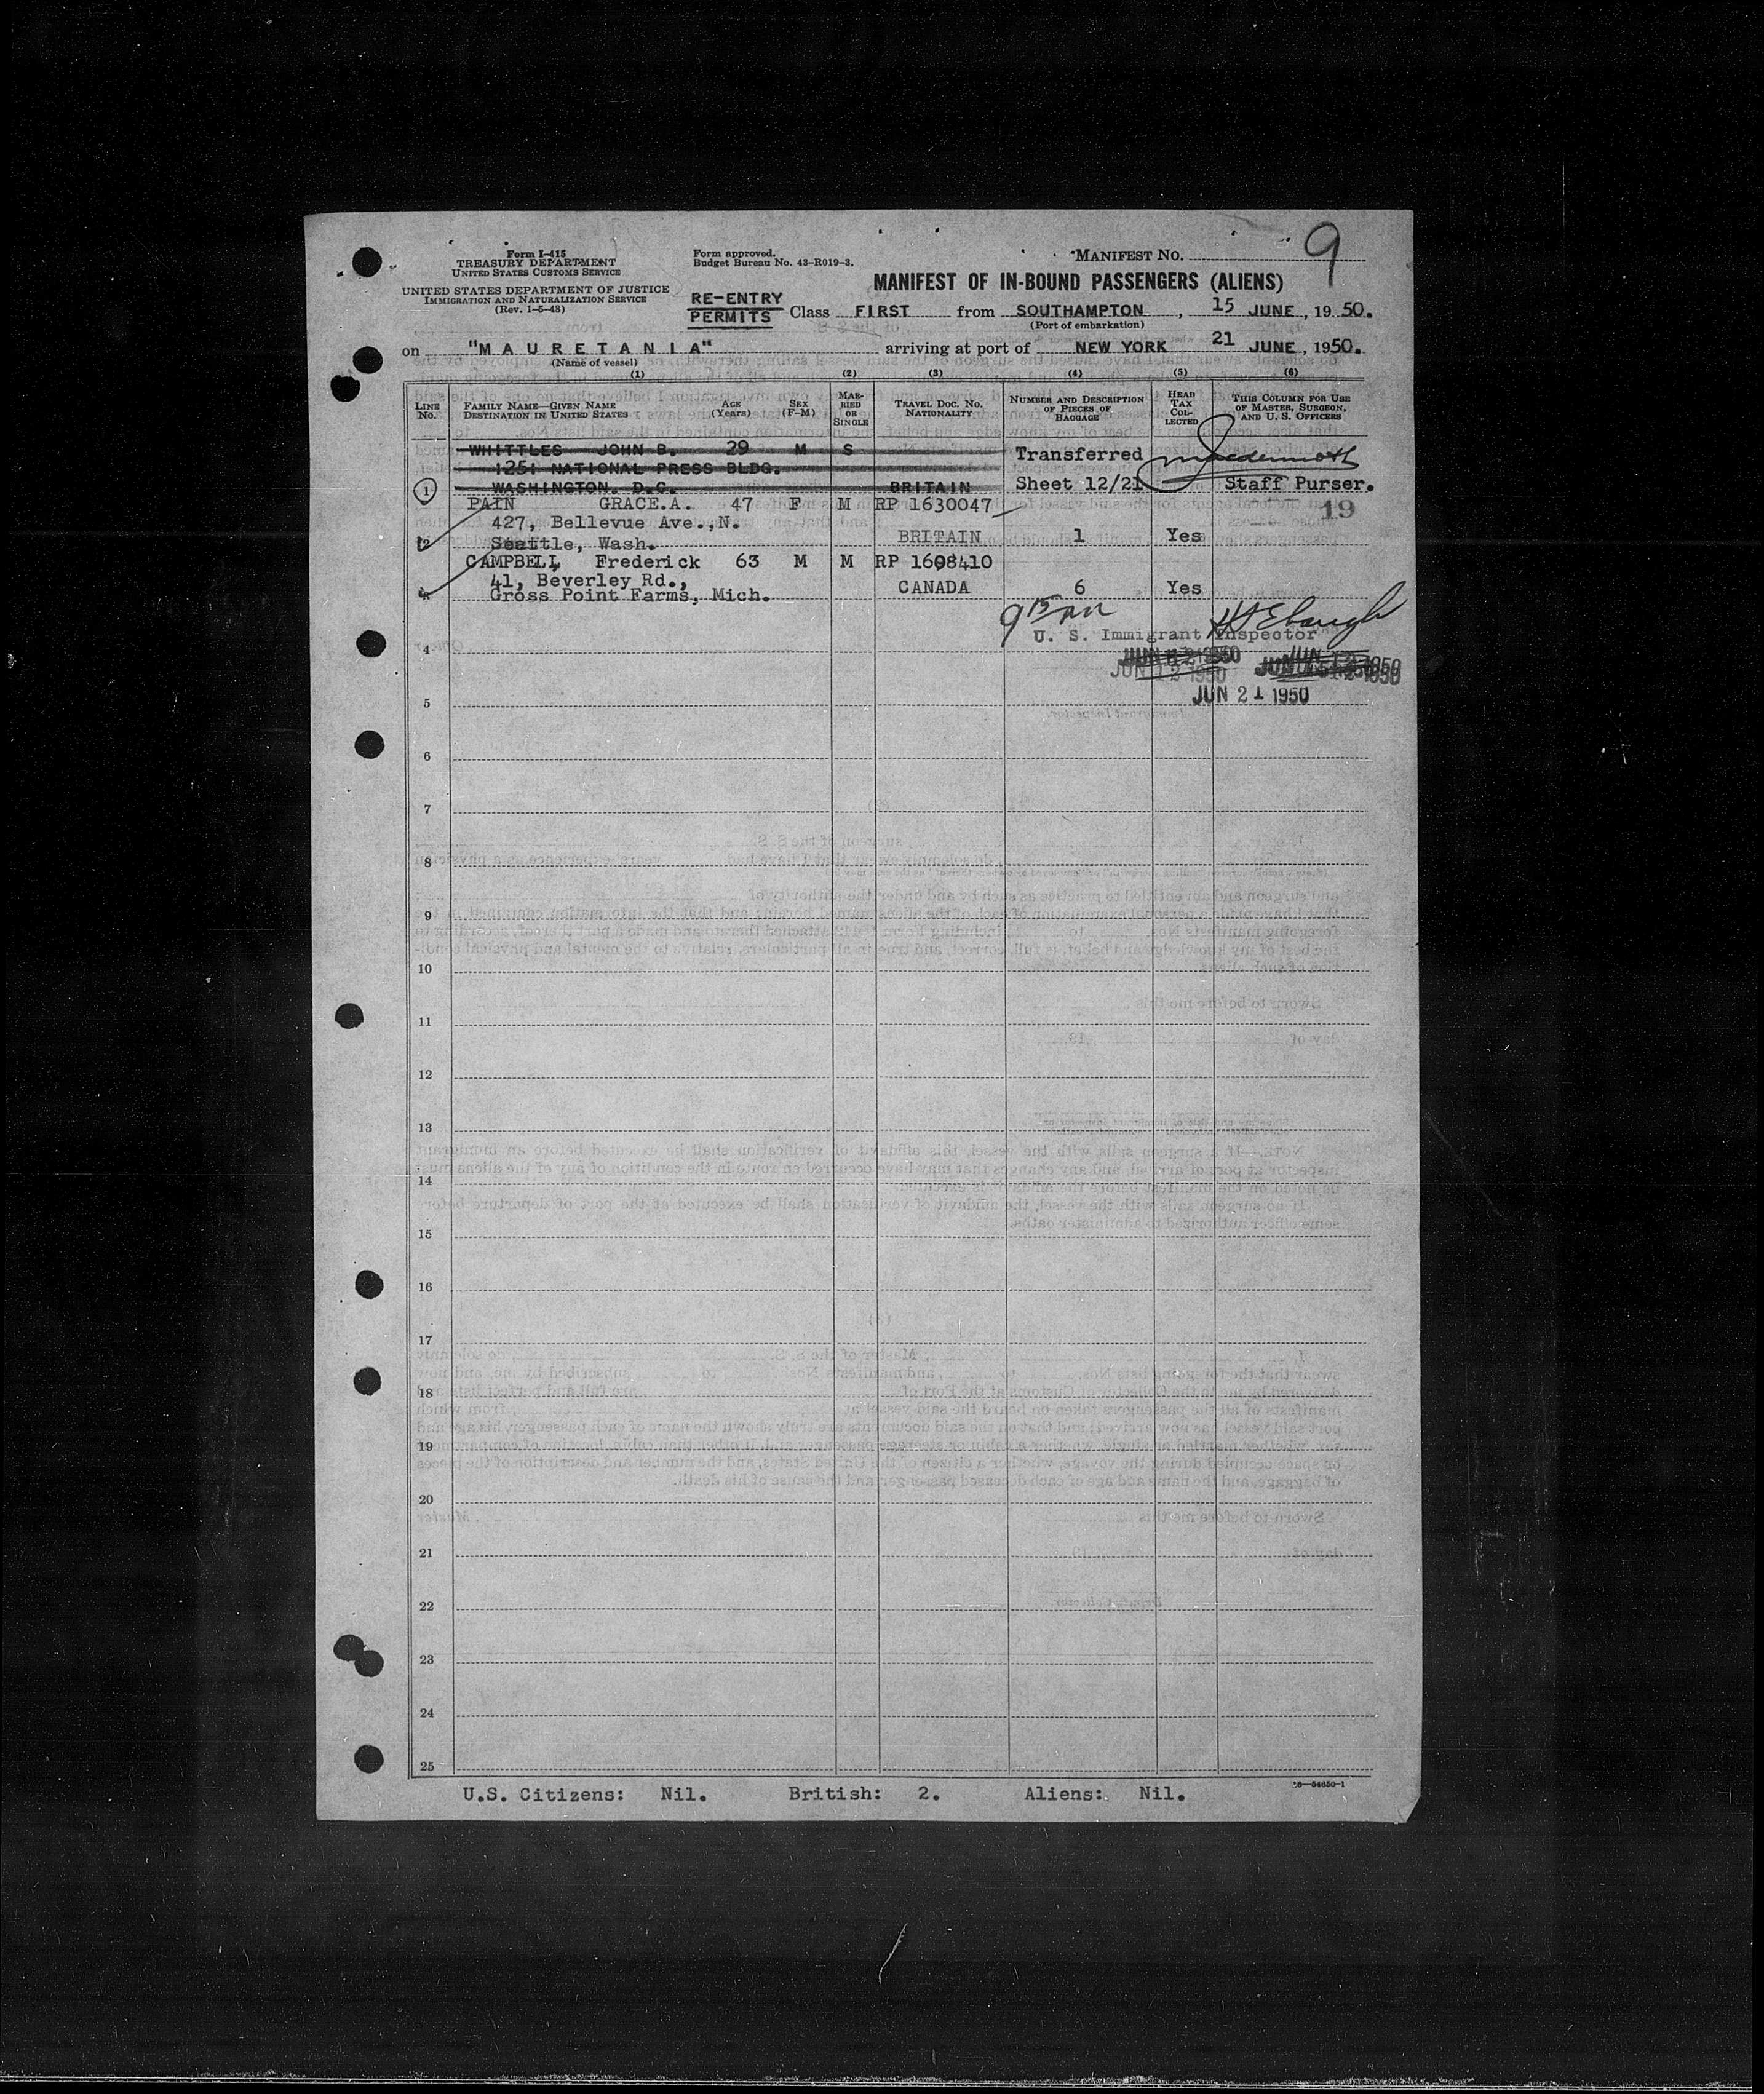 Form I-415
TREASURY DEPARTMENT
UNITED STATES CUSTOMS SERVICE
UNITED STATES DEPARTMENT OF JUSTICE
IMMIGRATION AND NATURALIZATION SERVICE
(Rev. 1-5-48)
Form approved.
Budget Bureau No. 43-R019-3.
MANIFEST NO. 9
MANIFEST OF IN-BOUND PASSENGERS (ALIENS)
RE-ENTRY PERMITS Class FIRST from SOUTHAMPTON, 15 JUNE, 1950.
(Port of embarkation)
on "MAURETANIA" arriving at port of NEW YORK 21 JUNE, 1950.
(Name of vessel)
(1) (2) (3) (4) (5) (6)
LINE No. FAMILY NAME—GIVEN NAME DESTINATION IN UNITED STATES AGE (Years) SEX (F-M) MARRIED OR SINGLE TRAVEL DOC. NO. NATIONALITY NUMBER AND DESCRIPTION OF PIECES OF BAGGAGE HEAD TAX COLLECTED THIS COLUMN FOR USE OF MASTER, SURGEON, AND U. S. OFFICERS
WHITTLES JOHN B. 29 M S Transferred
1251 NATIONAL PRESS BLDG.
1 WASHINGTON. D.C. BRITAIN Sheet 12/21 Staff Purser.
PAIN GRACE.A. 47 F M RP 1630047 19
427, Bellevue Ave.,N.
2 Seattle, Wash. BRITAIN 1 Yes
CAMPBELL Frederick 63 M M RP 1608410
41, Beverley Rd.,
Gross Point Farms, Mich. CANADA 6 Yes
9 15 am
U. S. Immigrant Inspector
4
JUN 12 1950
JUN 21 1950
5
6
7
8
9
10
11
12
13
14
15
16
17
18
19
20
21
22
23
24
25
16—54650-1
U.S. Citizens: Nil. British: 2. Aliens: Nil.